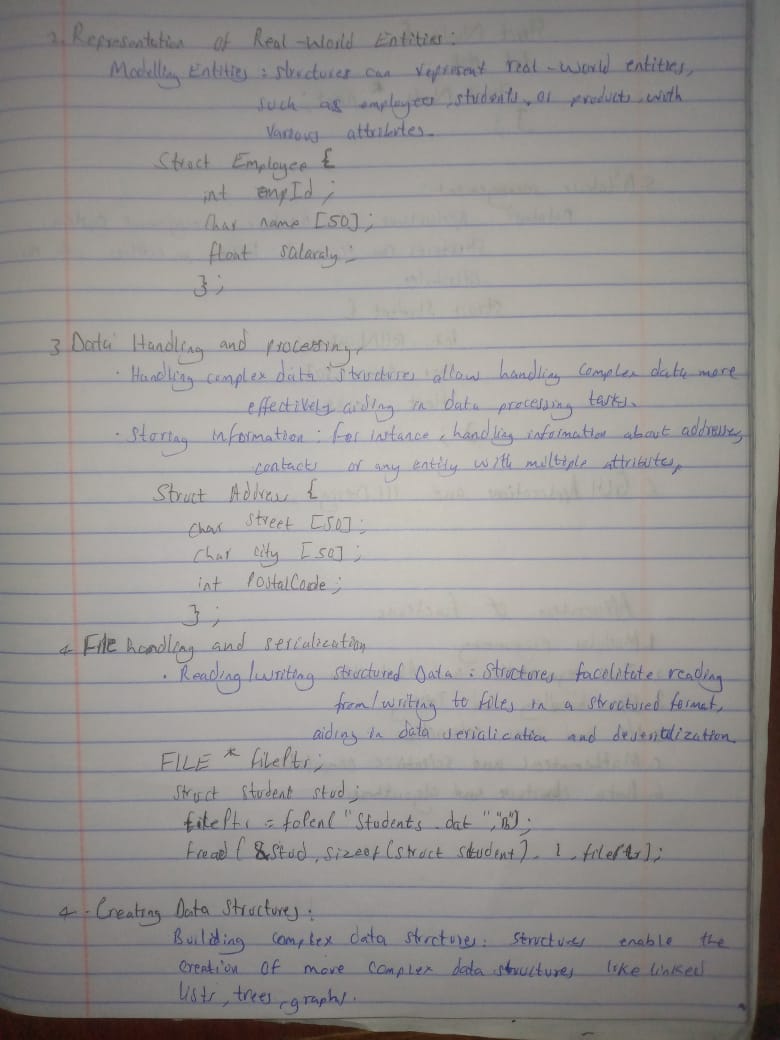 2. Representation of Real-World Entities:
Modelling Entities: structures can represent real-world entities,
such as employees, students, or products with
various attributes.
Struct Employee {
int empId;
char name [50];
float salaraly;
};
3 Data Handling and processing,
· Handling complex data structures allow handling complex data more
effectively aiding in data processing tasks.
· Storing information: for instance, handling information about addresses,
contacts or any entity with multiple attributes,
Struct Address {
char street [50];
char city [50];
int PostalCode;
};
4 File handling and serialication
· Reading/writing structured Data: Structures facelitate reading
from/writing to files in a structured format,
aiding in data serialication and
FILE * filePtr;
Struct student stud;
filePtr = fopen("Students.dat",
fread(&stud, sizeof(struct student), 1, filePtr);
4. Creating Data Structures:
Building complex data structures: structures enable the
creation of more complex data structures like linked
lists, trees, graphs.